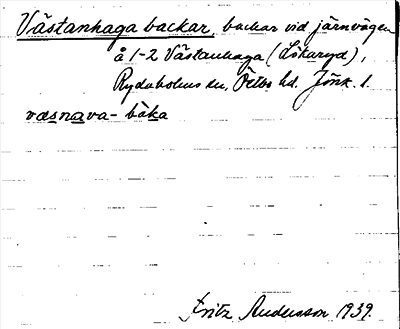 Västanhaga backar, backar vid järnvägen
å 1-2 Västanhaga (Lökaryd),
Rydaholms sn, Östbo hd. Jönk. l.
væsnava-båka
Fritz Andersson 1939.